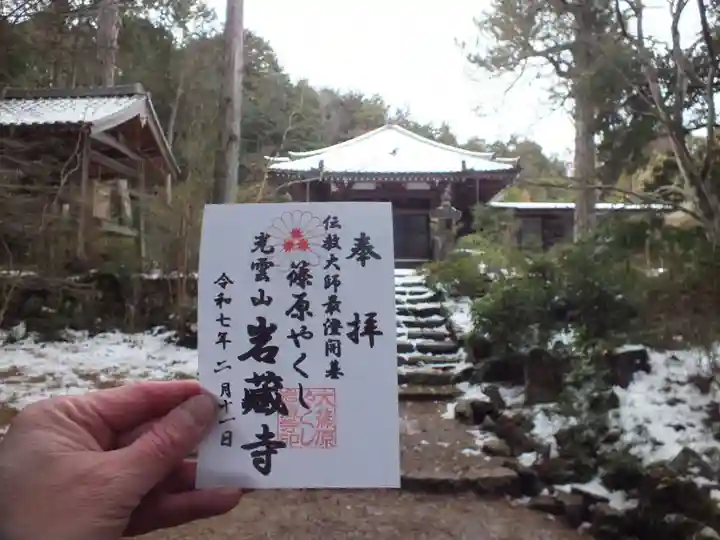 奉拝
伝教大師最澄開基
篠原やくし
光雲山
岩蔵寺
令和七年二月十一日